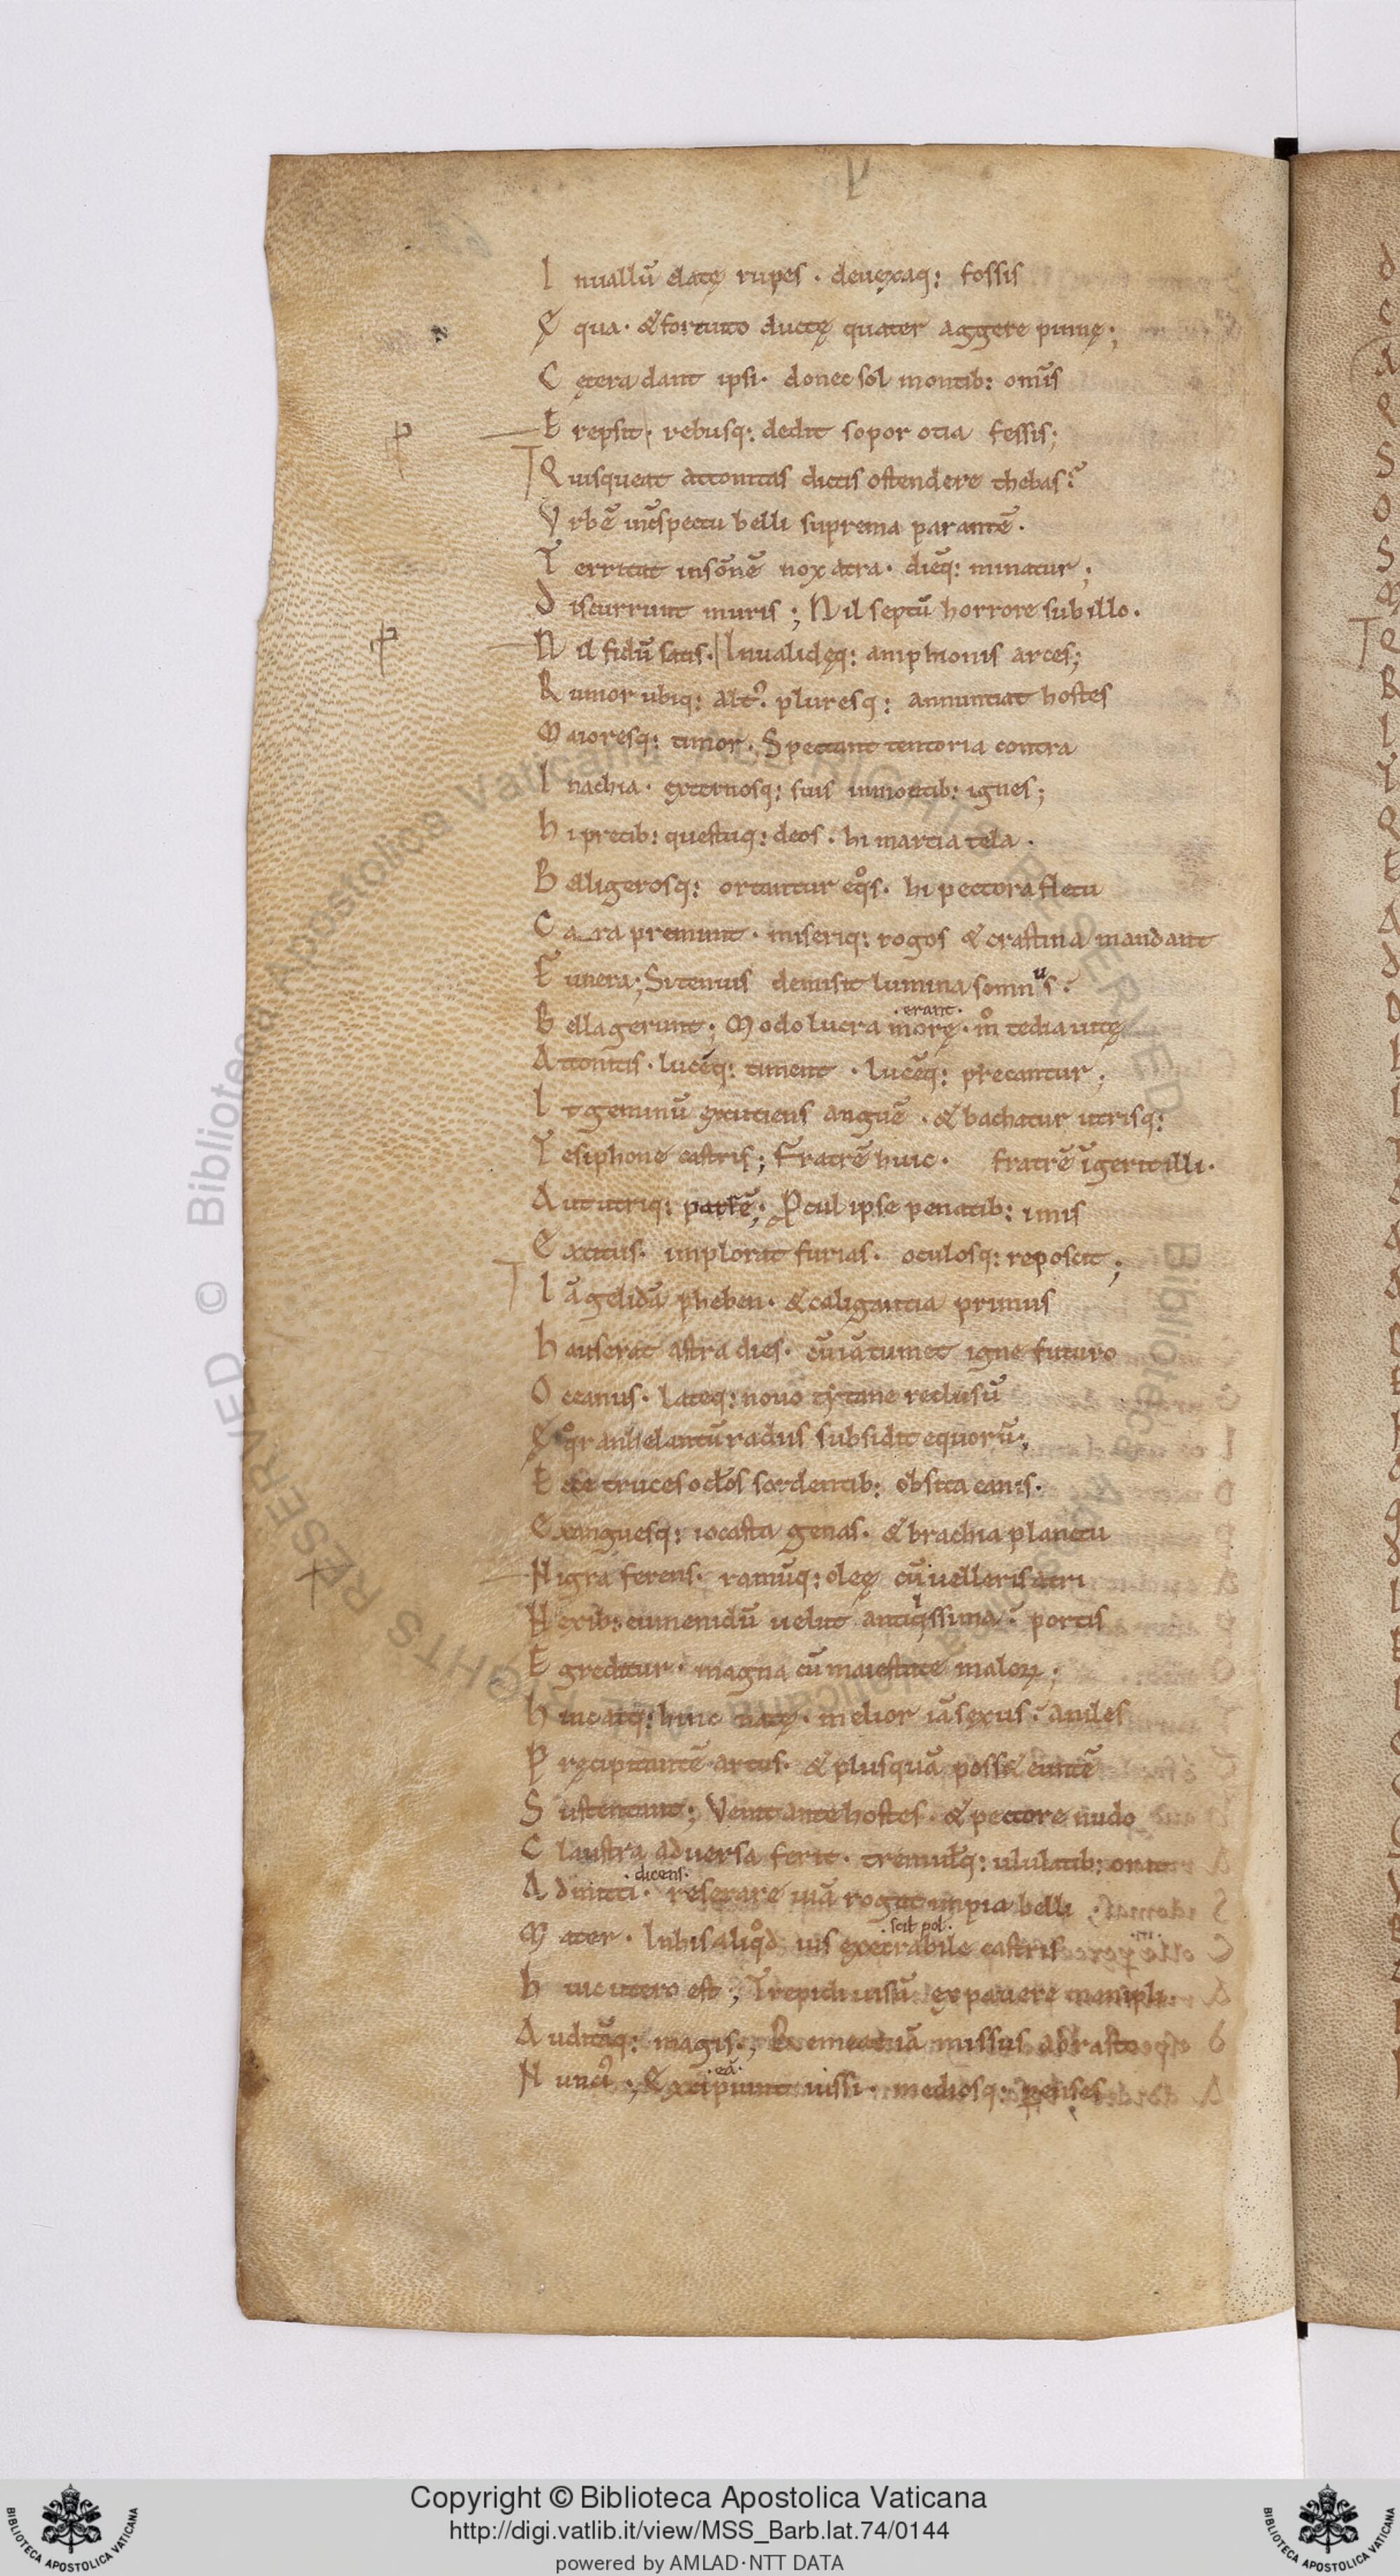 I nuallū datę rupes · deuexaq: fossis
Ę qua · & fortuito ductę quater aggere pinnę ;
C ętera dant ipsi · donec sol montib: om̄is
E repsit · rebusq: dedit sopor otia fessis ;
Q uisqueat attonitas dictis ostendere thebas ?
V rbē inc̄spectu belli suprema parantē ·
T erritat insōnē nox atra · diēq: minatur ;
D iscurrunt muris ; Nil septū horrore sub illo ·
N il fidū satis · Inualidęq: amphionis arces ;
R umor ubiq: alt᾿ · pluresq: annuntiat hostes
M aioresq: timor · Spectant tentoria contra
I nachia · externosq: suis inmontib: ignes ;
H i precib: questuq: deos · hi martia tela ·
B elligerosq: ortantur eq̊s · hi pectora fletu
C ara premunt · miseriq: rogos & crastina mandant
F unera ; Si tenuis demisit lumina somnus ·
· erant ·
B ella gerunt ; Modo lucra morę · m̊ tedia uitę
A ttonitis · lucēq: timent · lucēq: precantur ;
I t geminū excutiens anguē · & bachatur utrisq:
T esiphone castris ; Fratrē huic · fratrē īgerit illi ·
A ut utriq: patrē ; Pcul ipse penatib: imis
E xcitus · implorat furias · oculosq: reposcit ;
I ā gelidā pheben · & caligantia primus
H auserat astra dies · cū iā tumet igne futuro
O ceanus · lateq: nouo tytane reclusū
Ę q̊r anhelantū radiis subsidit equorū ;
E cce truces oc̄los sordentib: obsita canis ·
E xanguesq: iocasta genas · & brachia planctu
N igra ferens · ramūq: oleę cū uelleris atri
N exib: eumenidū uelut antiqissima · portis
E greditur · magna cū maiestate maloꝝ ;
H inc atq: hinc natę · melior iā sexus · aniles
P ręcipitantē artus · & plusquā posse euntē
S ustentant ; Venit ante hostes · & pectore nudo
C laustra aduersa ferit · tremulq: ululatib: orat
· dicens ·
A dmitti · reserare uiā rogat impia belli
· scil pol ·
M ater · In his aliq̊d uis execrabile castris
H uic utero est ; Trepidi uisā expauere manipli ·
A uditāq: magis ; Remeat iā missus abrasto
· eā ·
N unci᾿ ; Excipiunt iussi · mediosq: p enses